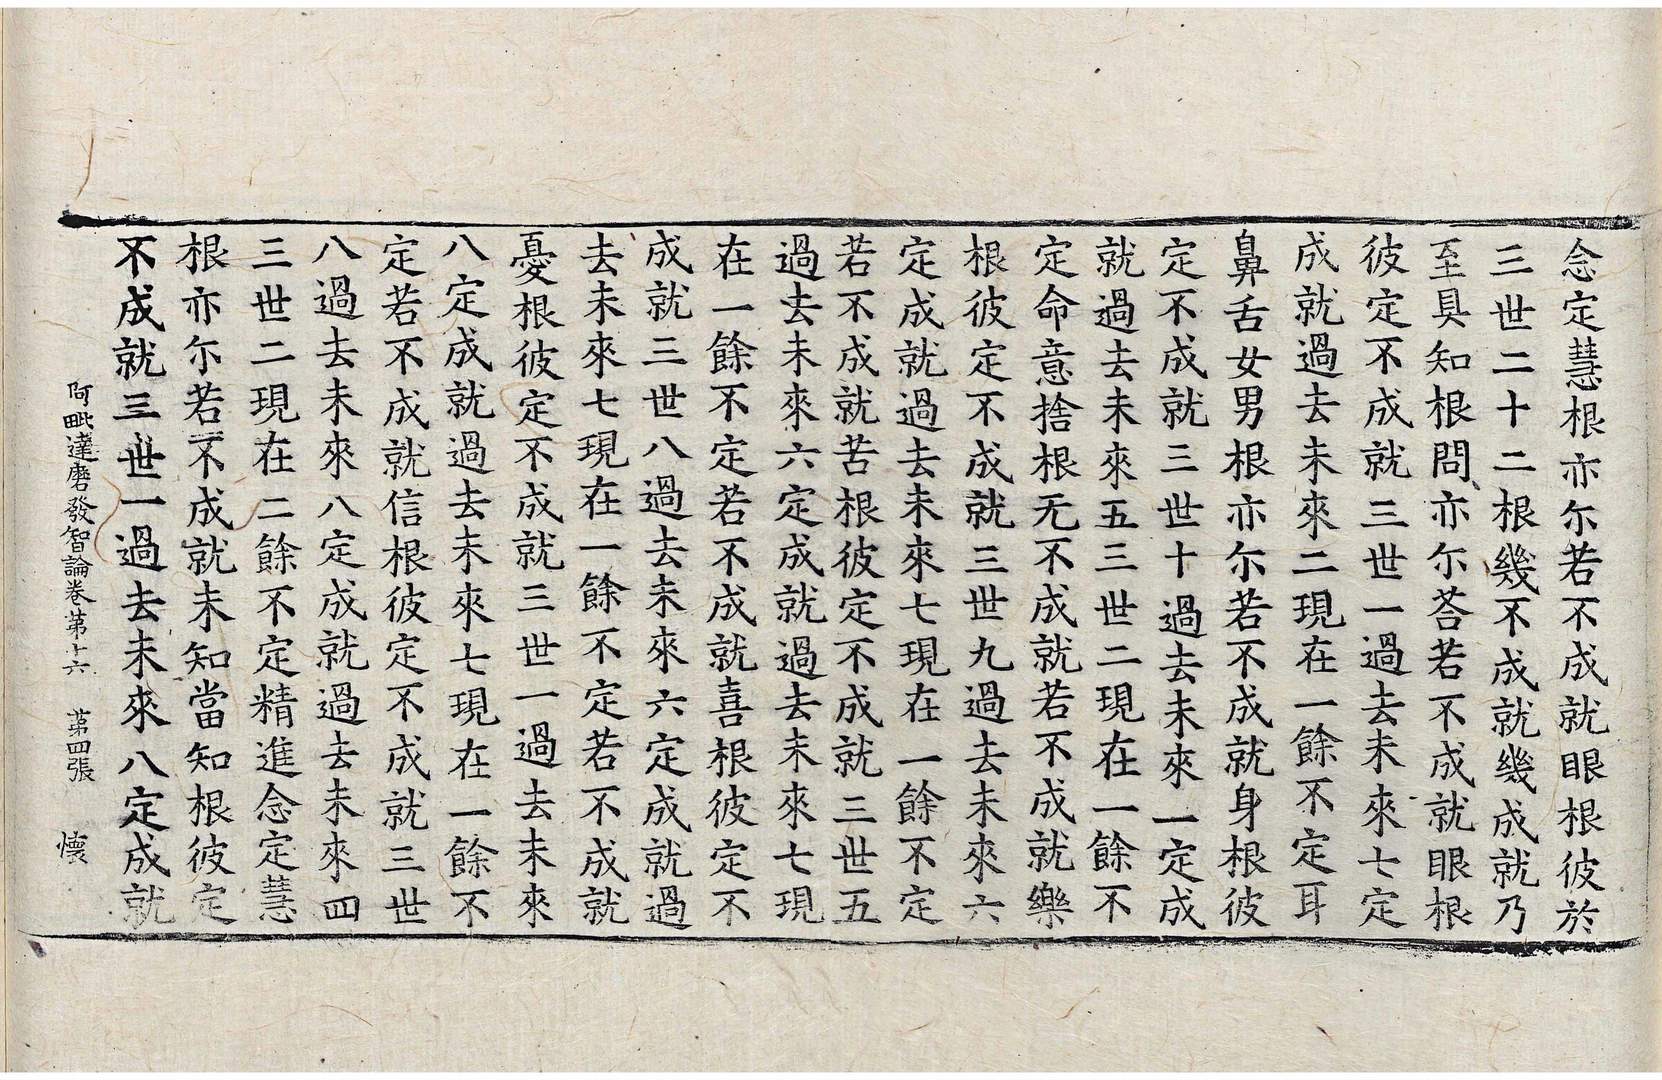 念定慧根亦尒若不成就眼根彼於
三世二十二根幾不成就幾成就乃
至具知根問亦尒荅若不成就眼根
彼定不成就三世一過去未來七定
成就過去未來二現在一餘不定耳
鼻舌女男根亦尒若不成就身根彼
定不成就三世十過去未來一定成
就過去未來五三世二現在一餘不
定命意捨根无不成就若不成就樂
根彼定不成就三世九過去未來六
定成就過去未來七現在一餘不定
若不成就苦根彼定不成就三世五
過去未來六定成就過去未來七現
在一餘不定若不成就喜根彼定不
成就三世八過去未來六定成就過
去未來七現在一餘不定若不成就
憂根彼定不成就三世一過去未來
八定成就過去未來七現在一餘不
定若不成就信根彼定不成就三世
八過去未來八定成就過去未來四
三世二現在二餘不定精進念定慧
根亦尒若不成就未知當知根彼定
不成就三世一過去未來八定成就
阿毗達磨發智論卷苐十六 苐四張 懐